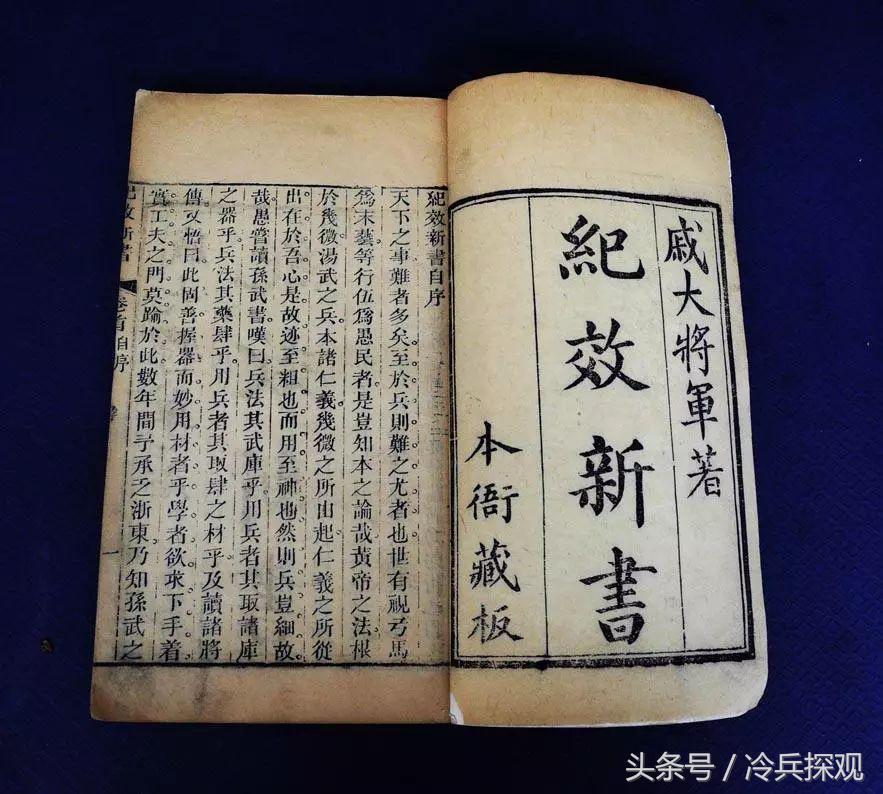 戚大將軍著
紀效新書
本衙藏板
紀效新書自序
天下之事難者多矣至於兵則難之尤者也世有視弓馬
爲末藝等行伍爲愚民者是豈知本之論哉黃帝之法根
於幾微湯武之兵本諸仁義幾微之所由起仁義之所從
出在於吾心是故迹至粗也而用至神也然則兵豈細故
哉愚嘗讀孫武書嘆曰兵法其武庫乎用兵者其取諸庫
之器乎兵法其藥肆乎用兵者其取肆之材乎及讀諸將
傳又悟曰此固善握器而妙用材者乎學者欲求下手着
實工夫之門莫踰於此數年間予承乏浙東乃知孫武之
紀效新書 卷首自序 一
头条号 / 冷兵探观